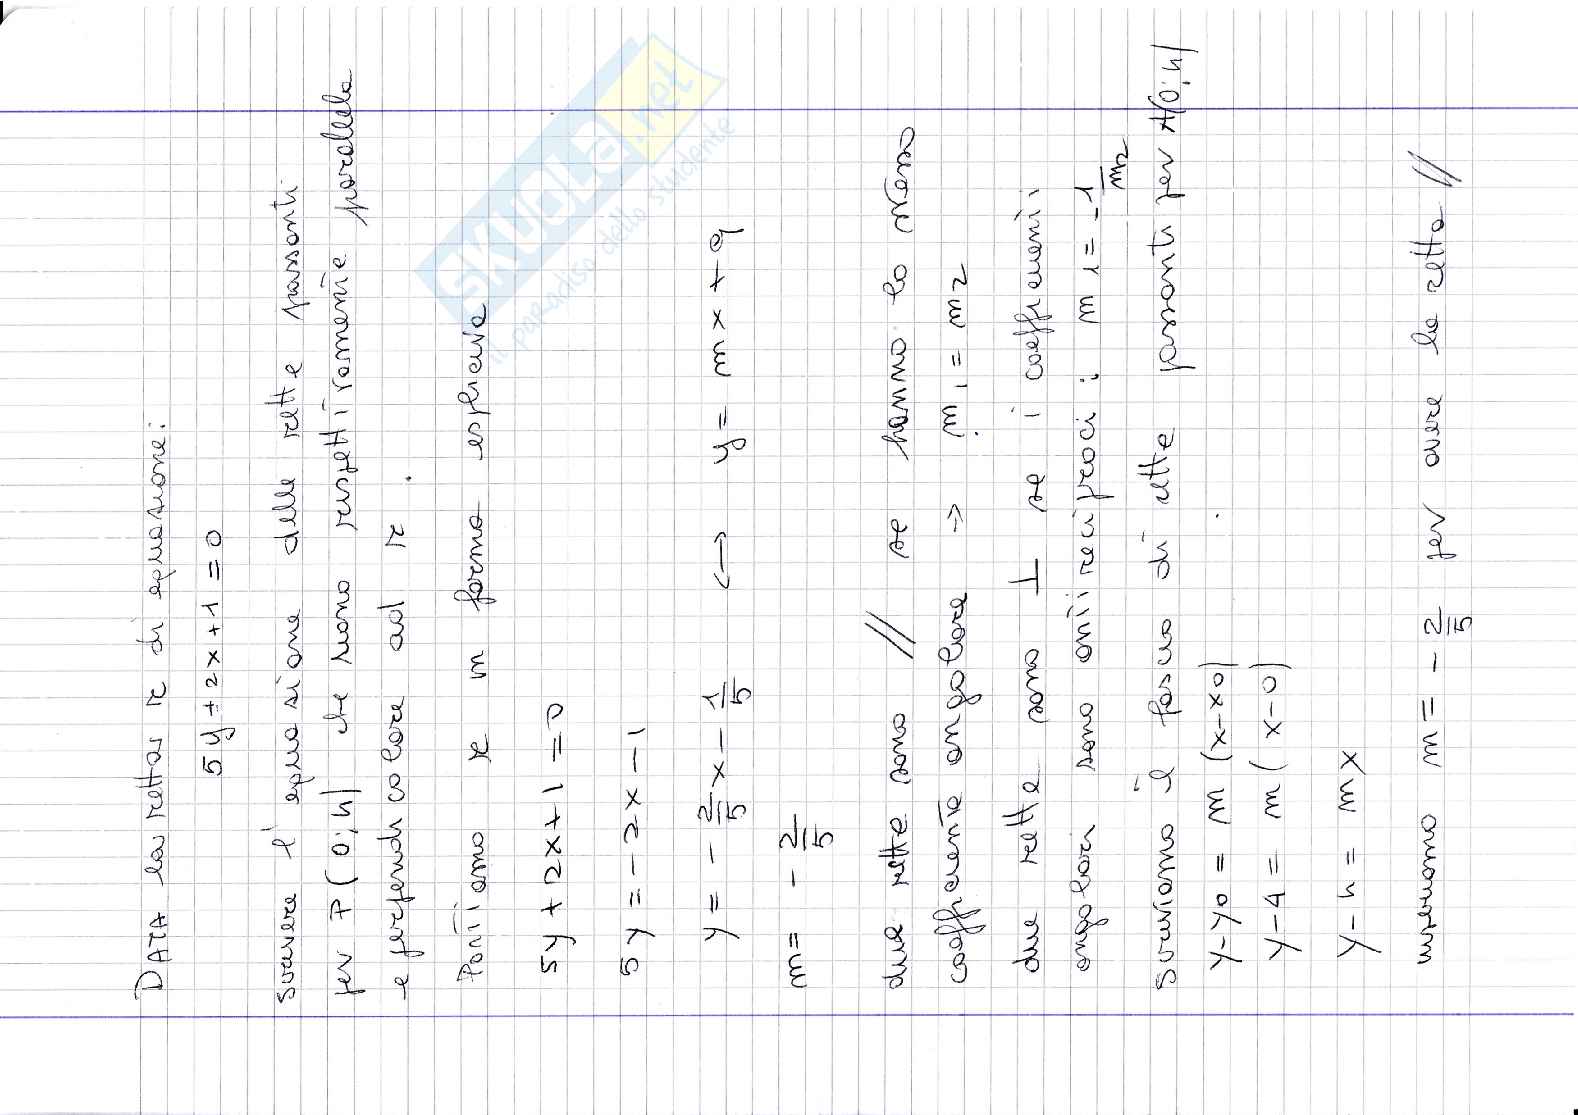 DATA la retta r di equazione:
5y + 2x + 1 = 0
scrivere l'equazione delle rette passanti
per P(0;4) che siano rispettivamente parallela
e perpendicolare ad r.
Portiamo r in forma esplicita
5y + 2x + 1 = 0
5y = -2x - 1
y = - 2/5 x - 1/5 ⟷ y = mx + q
m = - 2/5
due rette sono // se hanno lo stesso
coefficiente angolare → m1 = m2
due rette sono ⊥ se i coefficienti
angolari sono antireciproci : m1 = - 1/m2
Scriviamo il fascio di rette passanti per A(0;4)
y - y0 = m (x - x0)
y - 4 = m (x - 0)
y - 4 = mx
imponiamo m = - 2/5 per avere la retta //
SKUOLA.net
il paradiso dello studente